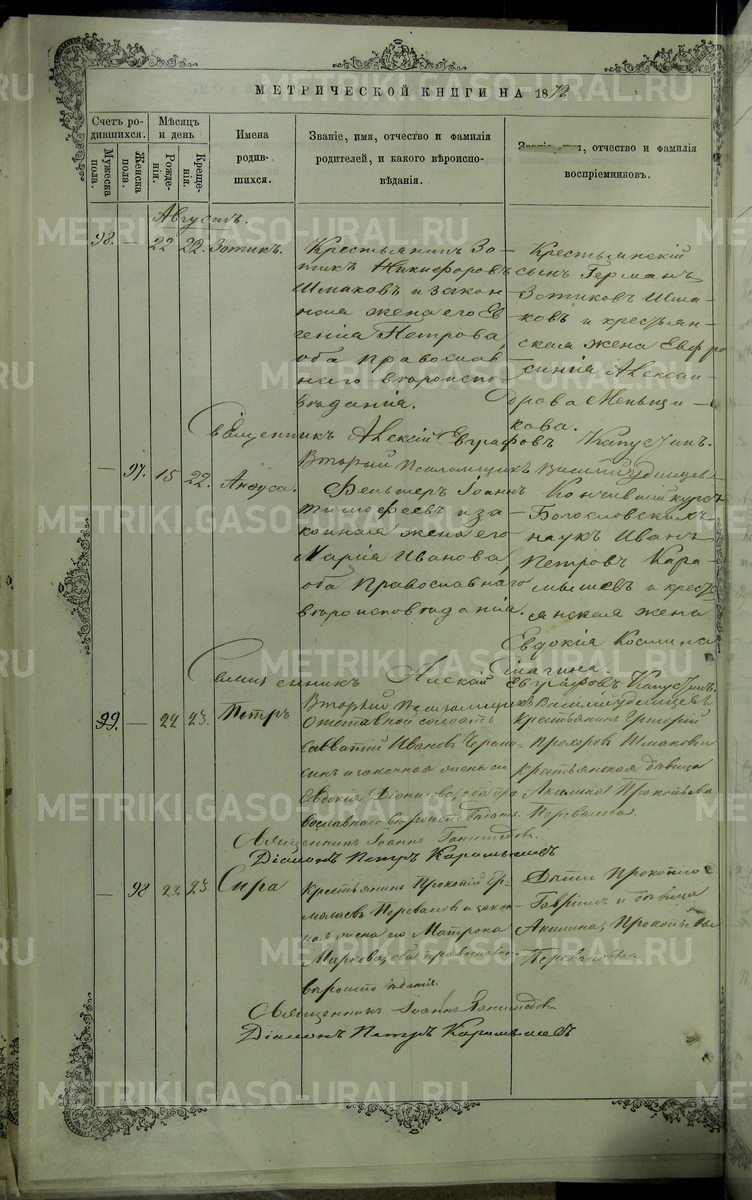 МЕТРИЧЕСКОЙ КНИГИ НА 1872
Счетъ родившихся.
Мужеска пола.
Женска пола.
Мѣсяцъ и день
Рожденія.
Крещенія.
Имена родившихся.
Званіе, имя, отчество и фамилія родителей, и какого вѣроисповѣданія.
Званіе, имя, отчество и фамилія воспріемниковъ.
Августъ.
98. — 22 22. Зотикъ.
Крестьянинъ Зо-
тикъ Никифоровъ
Шмаковъ и закон-
ная жена его Ев
генія Петрова,
оба православ
наго вѣроиспо-
вѣданія.
Крестьянскій
сынъ Германъ
Зотиковъ Шма-
ковъ и крестьян-
ская жена Евфро
синія Алексан-
дрова Меньщи-
кова.
Священникъ Алексій Евграфовъ Капустинъ.
Вторый Псаломщикъ Василій
— 97. 15 22. Анфуса.
Фельшеръ Іоаннъ
Тимофеевъ и за-
конная жена его
Марія Иванова,
оба Православнаго
вѣроисповѣданія.
Кончившій курсъ
Богословскихъ
наукъ Иванъ
Петровъ Кара-
мышевъ и крест
янская жена
Евдокія Космина
Священникъ Алексій Евграфовъ Капустинъ.
Вторый Псаломщикъ Василій
99. — 22 23. Петръ
Отставной солдатъ
Савватій Ивановъ
и законная жена его
Евдокія оба пра
вославнаго вѣроисповѣданія.
Крестьянинъ Григорій
Прохоровъ Шмаковъ и
крестьянская дѣвица
Акилина Прокопьева
Перевалова.
Священникъ Іоаннъ
Діаконъ Петръ Карамышевъ
— 98 22 23. Сира
Крестьянинъ Прокопій Ер-
молаевъ Переваловъ и закон-
ная жена его Матрона
Маркова, оба православнаго
вѣроисповѣданія.
Дѣти Прокопія
Гавріилъ и дѣвица
Акилина, Прокопьевы
Переваловы
Священникъ Іоаннъ
Діаконъ Петръ Карамышевъ
METRIKI.GASO-URAL.RU